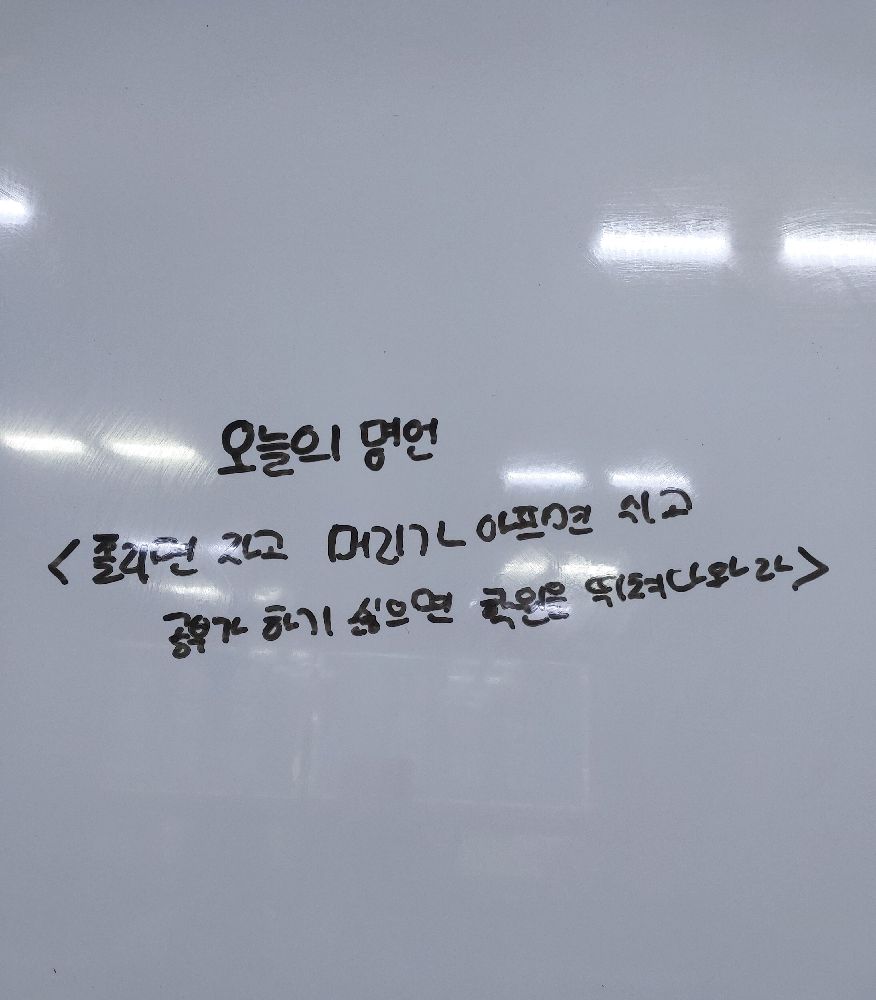 오늘의 명언
<졸리면 자고 머리가 아프면 쉬고
공부가 하기 싫으면 학원을 뛰쳐나와라>